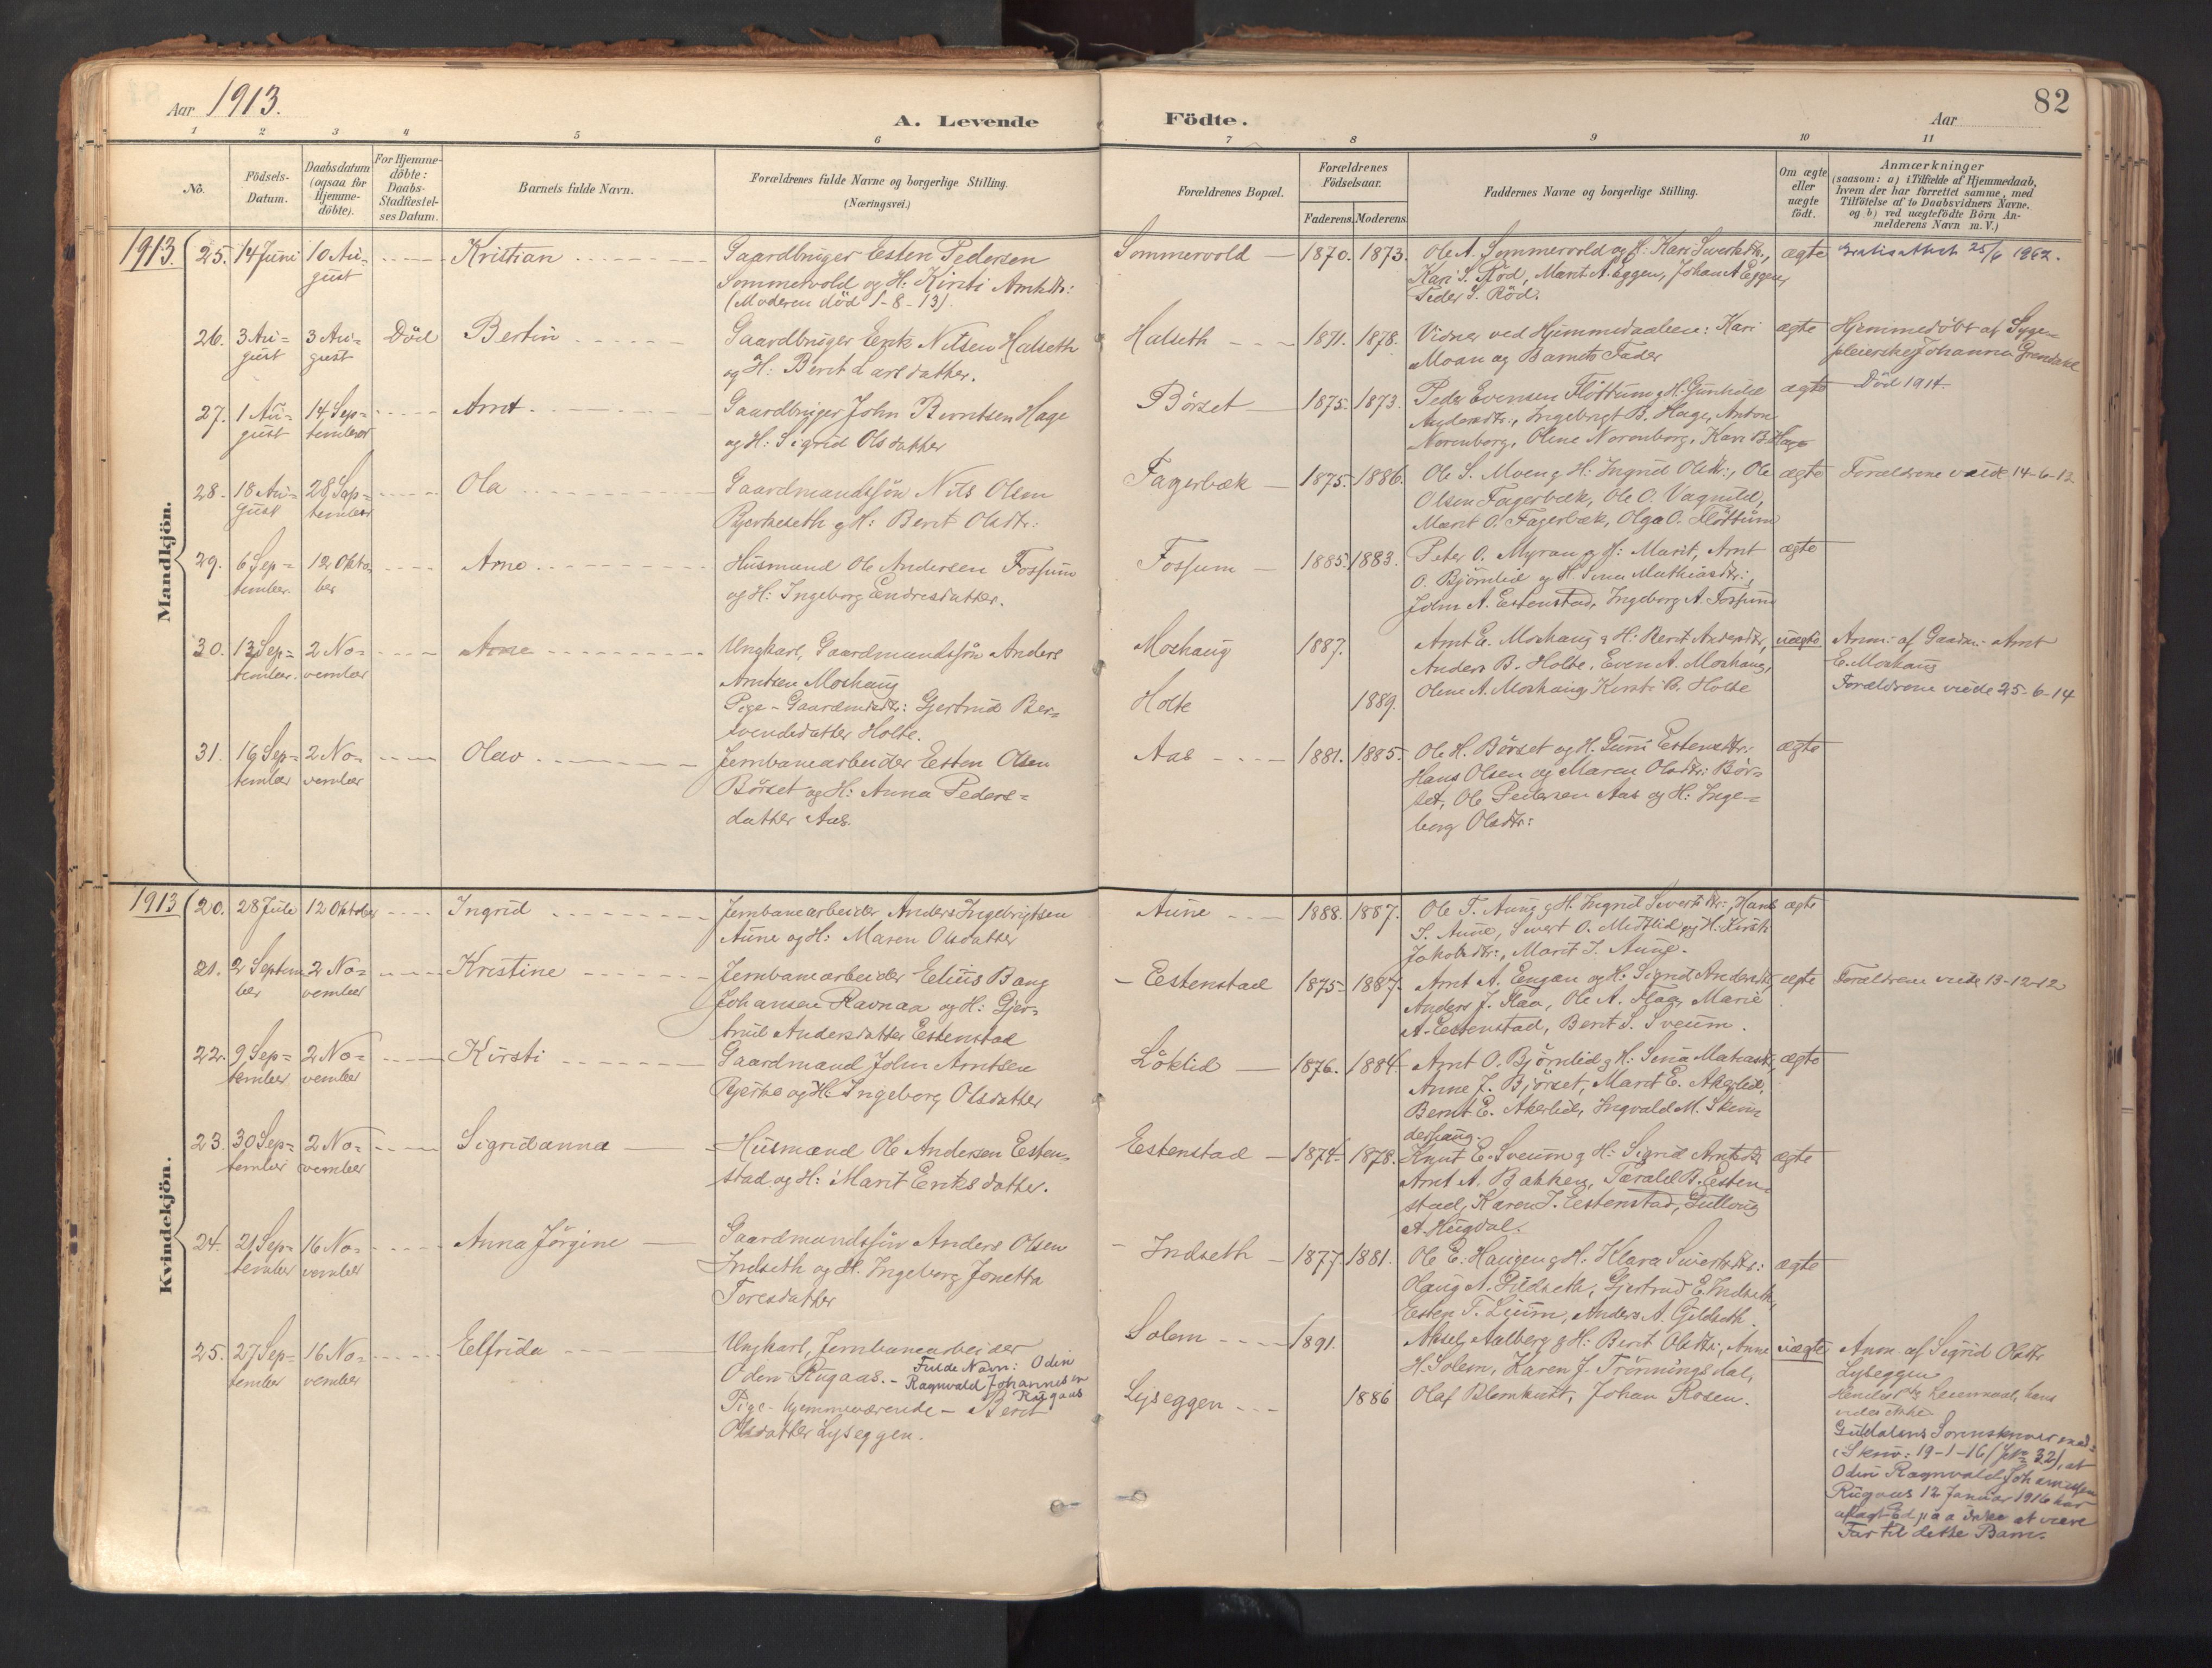 Aar 1913.
A. Levende
Födte.
Aar
82
1 2 3 4 5 6 7 8 9 10 11
No.
Födsels-
Datum.
Daabsdatum
(ogsaa for
Hjemme-
döbte).
For Hjemme-
döbte:
Daabs-
Stadfæstel-
ses Datum.
Barnets fulde Navn.
Forældrenes fulde Navne og borgerlige Stilling.
(Næringsvei.)
Forældrenes Bopæl.
Forældrenes
Födselsaar.
Faderens. Moderens.
Faddernes Navne og borgerlige Stilling.
Om ægte
eller
uægte
födt.
Anmærkninger
(saasom: a) i Tilfælde af Hjemmedaab,
hvem der har forrettet samme, med
Tilföielse af to Daabsvidners Navne.
og b) ved uægtefödte Börn An-
melderens Navn m. V.)
Mandkjön.
1913.
25. 14 Juni
10 Au-
gust
Kristian
Gaardbruger Esten Pedersen
Sommervold og H: Kirsti Arntsdtr:
(Moderen död 1-8-13).
Sommervold 1870. 1873.
Ole A. Sommervold og H: Kari Sivertsdtr.,
Kari S. Röd, Marit A. Eggen, Johan A Eggen,
Peder S. Röd.
ægte
Gratis attest 25/6 1962.
26. 3 Au-
gust
3 Au-
gust
Död
Bertin
Gaardbruger Erik Nilsen Halseth
og H: Berit Larsdatter.
Halseth 1871. 1878.
Vidner ved Hjemmedaaben: Kari
Moan og Barnets Fader
ægte
Hjemmedöbt af Syge-
pleierske Johanna Grendahl
Död 1914.
27. 1 Au-
gust
14 Sep-
tember
Arnt
Gaardbryger John Berntsen Hage
og H: Sigrid Olsdatter
Börset 1875. 1873.
Peder Evensen Flöttum og H. Gunhild
Andersdtr., Ingebrigt B. Hage, Anton
Norenborg, Oline Norenborg, Kari B. Hage
ægte
28. 18 Au-
gust
28 Sep-
tember
Ola
Gaardmandssön Nils Olsen
Bjerkeseth og H: Berit Olsdtr:
Fagerbæk 1875. 1886.
Ole S. Moen og H: Ingrid Olsdtr:, Ole
Olsen Fagerbæk, Ole O. Vagnild,
Marit O. Fagerbæk, Olga O. Flöttum
ægte
Forældrene viede 14-6-13
29. 6 Sep-
tember.
12 Okto-
ber
Arne
Husmand Ole Andersen Fossum
og H: Ingeborg Endresdatter.
Fossum 1885. 1883.
Peter O. Myran og H: Marit, Arnt
O. Björnlid og H. Sina Mathiasdtr:,
John A. Estenstad, Ingeborg A. Fossum
ægte
30. 13 Sep-
tember.
2 No-
vember
Arne
Ungkarl, Gaardmandssön Anders
Arntsen Moshaug
Pige - Gaardmdsdtr: Gjertrud Ber-
svendsdatter Holte.
Moshaug 1887.
Holte 1889.
Arnt E. Moshaug og H: Berit Andersdtr,
Anders B. Holte, Even A. Moshaug,
Oline A. Moshaug, Kirsti B. Holte
uægte
Anm: af Gaardm: Arnt
E. Moshaug
Forældrene viede 25-6-14
31. 16 Sep-
tember
2 No-
vember
Olav
Jernbanearbeider Esten Olsen
Börset og H: Anna Peders-
datter Aas.
Aas 1881. 1885.
Ole H. Börset og H. Guri Estensdtr:
Hans Olsen og Maren Olsdtr: Bör-
set, Ole Pedersen Aas og H: Inge-
borg Olsdtr:
ægte
Kvindekjön.
1913
20. 28 Juli
12 Oktober
Ingrid
Jernbanearbeider Anders Ingebrigtsen
Aune og H: Maren Olsdatter
Aune 1888. 1887.
Ole T. Aune og H. Ingrid Sivertsdtr:, Hans
I. Aune, Sivert O. Midtlid og H: Kirsti
Jakobsdtr:, Marit I. Aune.
ægte
21. 2 Septem
ber
2 No-
vember
Kristine
Jernbanearbeider Edius Bang
Johansen Ravnaa og H: Gjer-
trud Andersdatter Estenstad
Estenstad 1875. 1887.
Arnt A. Engan og H: Sigrid Andersdtr,
Anders J. Flaa, Ole A. Flaa, Marie
A. Estenstad, Berit S. Sveum.
ægte
Forældrene viede 13-12-12
22. 9 Sep-
tember
2 No-
vember
Kirsti
Gaardmand John Arntsen
Bjerke og H: Ingeborg Olsdatter
Löklid 1876. 1884.
Arnt O. Björnlid og H: Sina Matiasdtr,
Anne J. Bjórset, Marit E. Akerlid,
Bernt E. Akerlid, Ingvald M. Skin
derhaug.
ægte
23. 30 Sep-
tember
2 No-
vember
Sigridanna
Husmand Ole Andersen Esten-
stad og H: Marit Eriksdatter.
Estenstad 1874. 1878.
Knut E. Sveum og H: Sigrid Arntsdtr
Arnt A. Bakken, Tarald B. Esten-
stad, Karen J. Estenstad, Gullaug
A. Hugdal.
ægte
24. 21 Sep-
tember
16 No-
vember
Anna Jörgine
Gaardmandssön Anders Olsen
Indseth og H. Ingeborg Jonetta
Toresdatter
Indseth 1877. 1881.
Ole E. Haugen og H: Klara Sivertsdtr:
Haug A. Gildseth, Gjertrud E. Indseth,
Esten T. Lium, Anders A. Gildseth.
ægte
25. 27 Sep-
tember
16 No-
vember
Elfrida
Ungkarl, Jernbanearbeider
Odin Rugaas. - Fulde Navn: Odin
Ragnvald Johannesen
Rugaas
Pige - hjemmeværende - Berit
Olsdatter Lyseggen.
Solem 1891.
Lyseggen 1886
Aksel Aalberg og H: Berit Olsdtr:, Anne
H. Solem, Karen J. Trönningsdal,
Olaf Blomkvist, Johan Rosen.
uægte
Anm. af Sigrid Olsdtr
Lyseggen
Hendes 2det Leiermaal, hans
vides ikke
Guldalens Sorenskriver med-
(Skriv: 19-1-16 (Jr. 32), at
Odin Ragnvald Johannesen
Rugaas 12 Januar 1916 har
aflagt Ed paa ikke at være
Far til dette Barn.